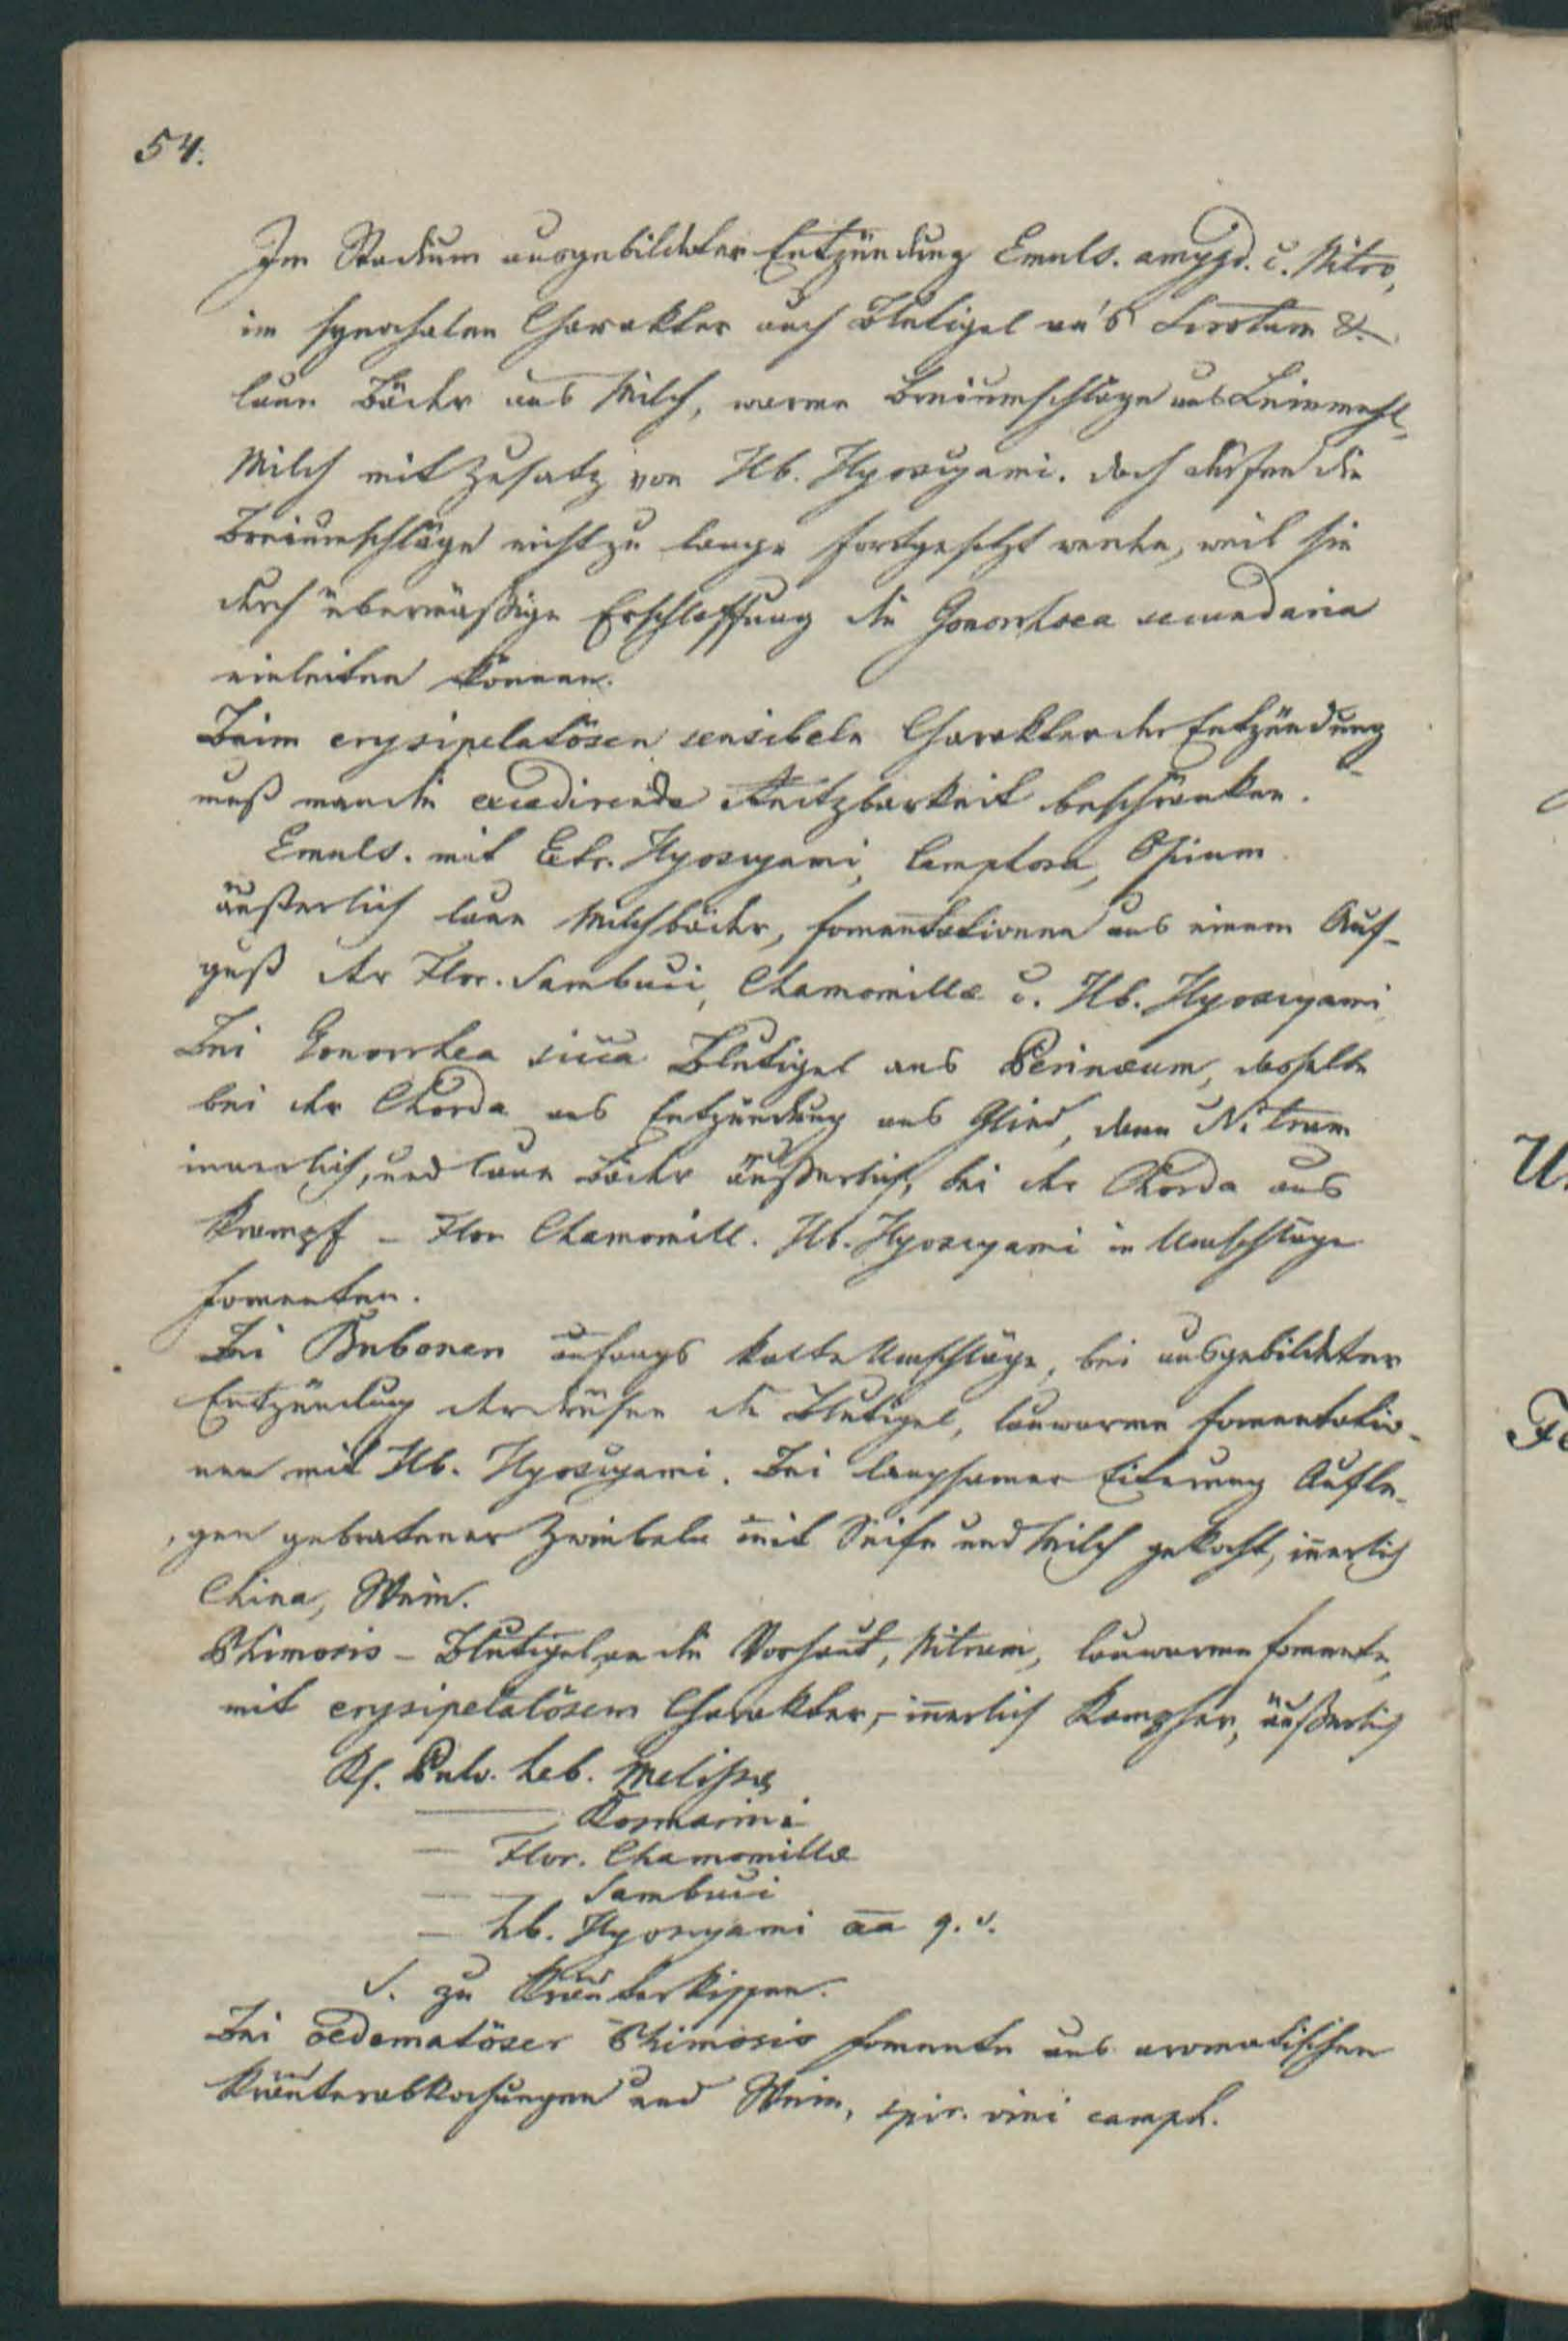 54.
Im Stadium ausgebildeter Entzündung Emuls. amygd. c. Nitro,
im synochalen Charakter auch Blutigel an's Scrotum &
laue Bäder aus Milch, warme Breiumschläge aus Leinmehl,
Milch mit Zusatz von Hb. Hyoscyami. doch dürfen die
Breiumschläge nicht zu lange fortgesetzt werden, weil sie
durch übermäßige Erschlaffung die Gonorrhoea secundaria
einleiten können.
Beim erysipelatösen sensibeln Charakter der Entzündung
muß man die excedirende Reitzbarkeit beschränken.
Emuls. mit Extr. Hyoscyami, Camphora, Opium
äußerlich laue Milchbäder, Fomentationen aus einem Auf-
guß der Flor. Sambuci, Chamomillae u. Hb. Hyoscyami
Bei Gonorrhea sicca Blutigel ans Perinaeum, dasselbe
bei der Chorda aus Entzündung ans Glied, dann Nitrum
innerlich, und laue Bäder äußerlich, bei der Chorda aus
Krampf – Flor Chamomill. Hb. Hyoscyami in Umschläge
Fomenten.
Bei Bubonen anfangs kalte Umschläge, bei ausgebildeter
Entzündung der Drüsen die Blutigel, lauwarme Fomentatio-
nen mit Hb. Hyoscyami. Bei langsamer Eiterung Aufle-
gen gebratener Zwiebeln mit Seife und Milch gekocht, inerlich
China, Wein.
Phimosis – Blutigel an die Vorhaut, Nitrum, lauwarme Fomente,
mit erysipelatösem Charakter, – inerlich Kampher, äußerlich
Rf. Pulv. heb. Melissae
— Rosmarini
— Flor. Chamomillae
— — Sambuci
— hb. Hyoscyami aa q. s.
S. zu Kräuterkissen.
Bei oedematöser Phimosis Fomente aus aromatischen
Kräuterabkochungen und Wein, spir. vini camph.